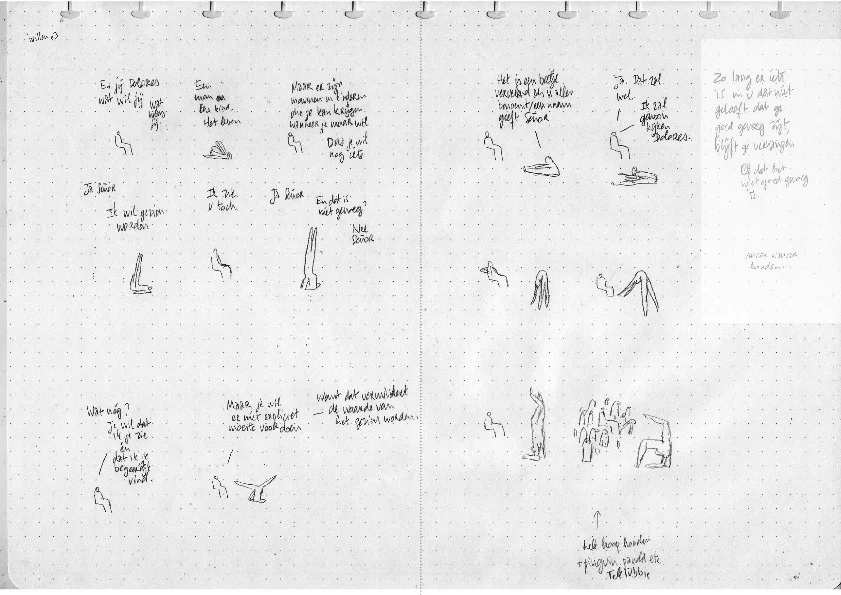 En jij Dolores
wat wil jij
wat
wens
jij
Een
man en
Een kind.
Het leven
Maar er zijn
mannen en kinderen
die je kan krijgen
wanneer je maar wil
Dus je wil
nog iets
Ja Señor
Ik wil gezien
worden
Ik zie
u toch
Ja Señor
En dat is
niet genoeg?
Nee
Señor
Wat nóg?
Je wil dat
ik je zie
én
dat ik je
begeerlijk
vind.
Maar je wil
er niet expliciet
moeite voor doen
Want dat vermindert
de waarde van
het gezien worden.
Het is een beetje
vervelend als u alles
benoemt/een naam
geeft Señor
Ja. Dat zal
wel
Ik zal
gewoon
kijken
Dolores.
Zo lang er iets
is in u dat niet
gelooft dat ge
goed genoeg zijt,
blijft ge verlangen
Of dat het
niet goed genoeg
is
hele hoop honden
+ pinguin, panda etc
Teletubbie